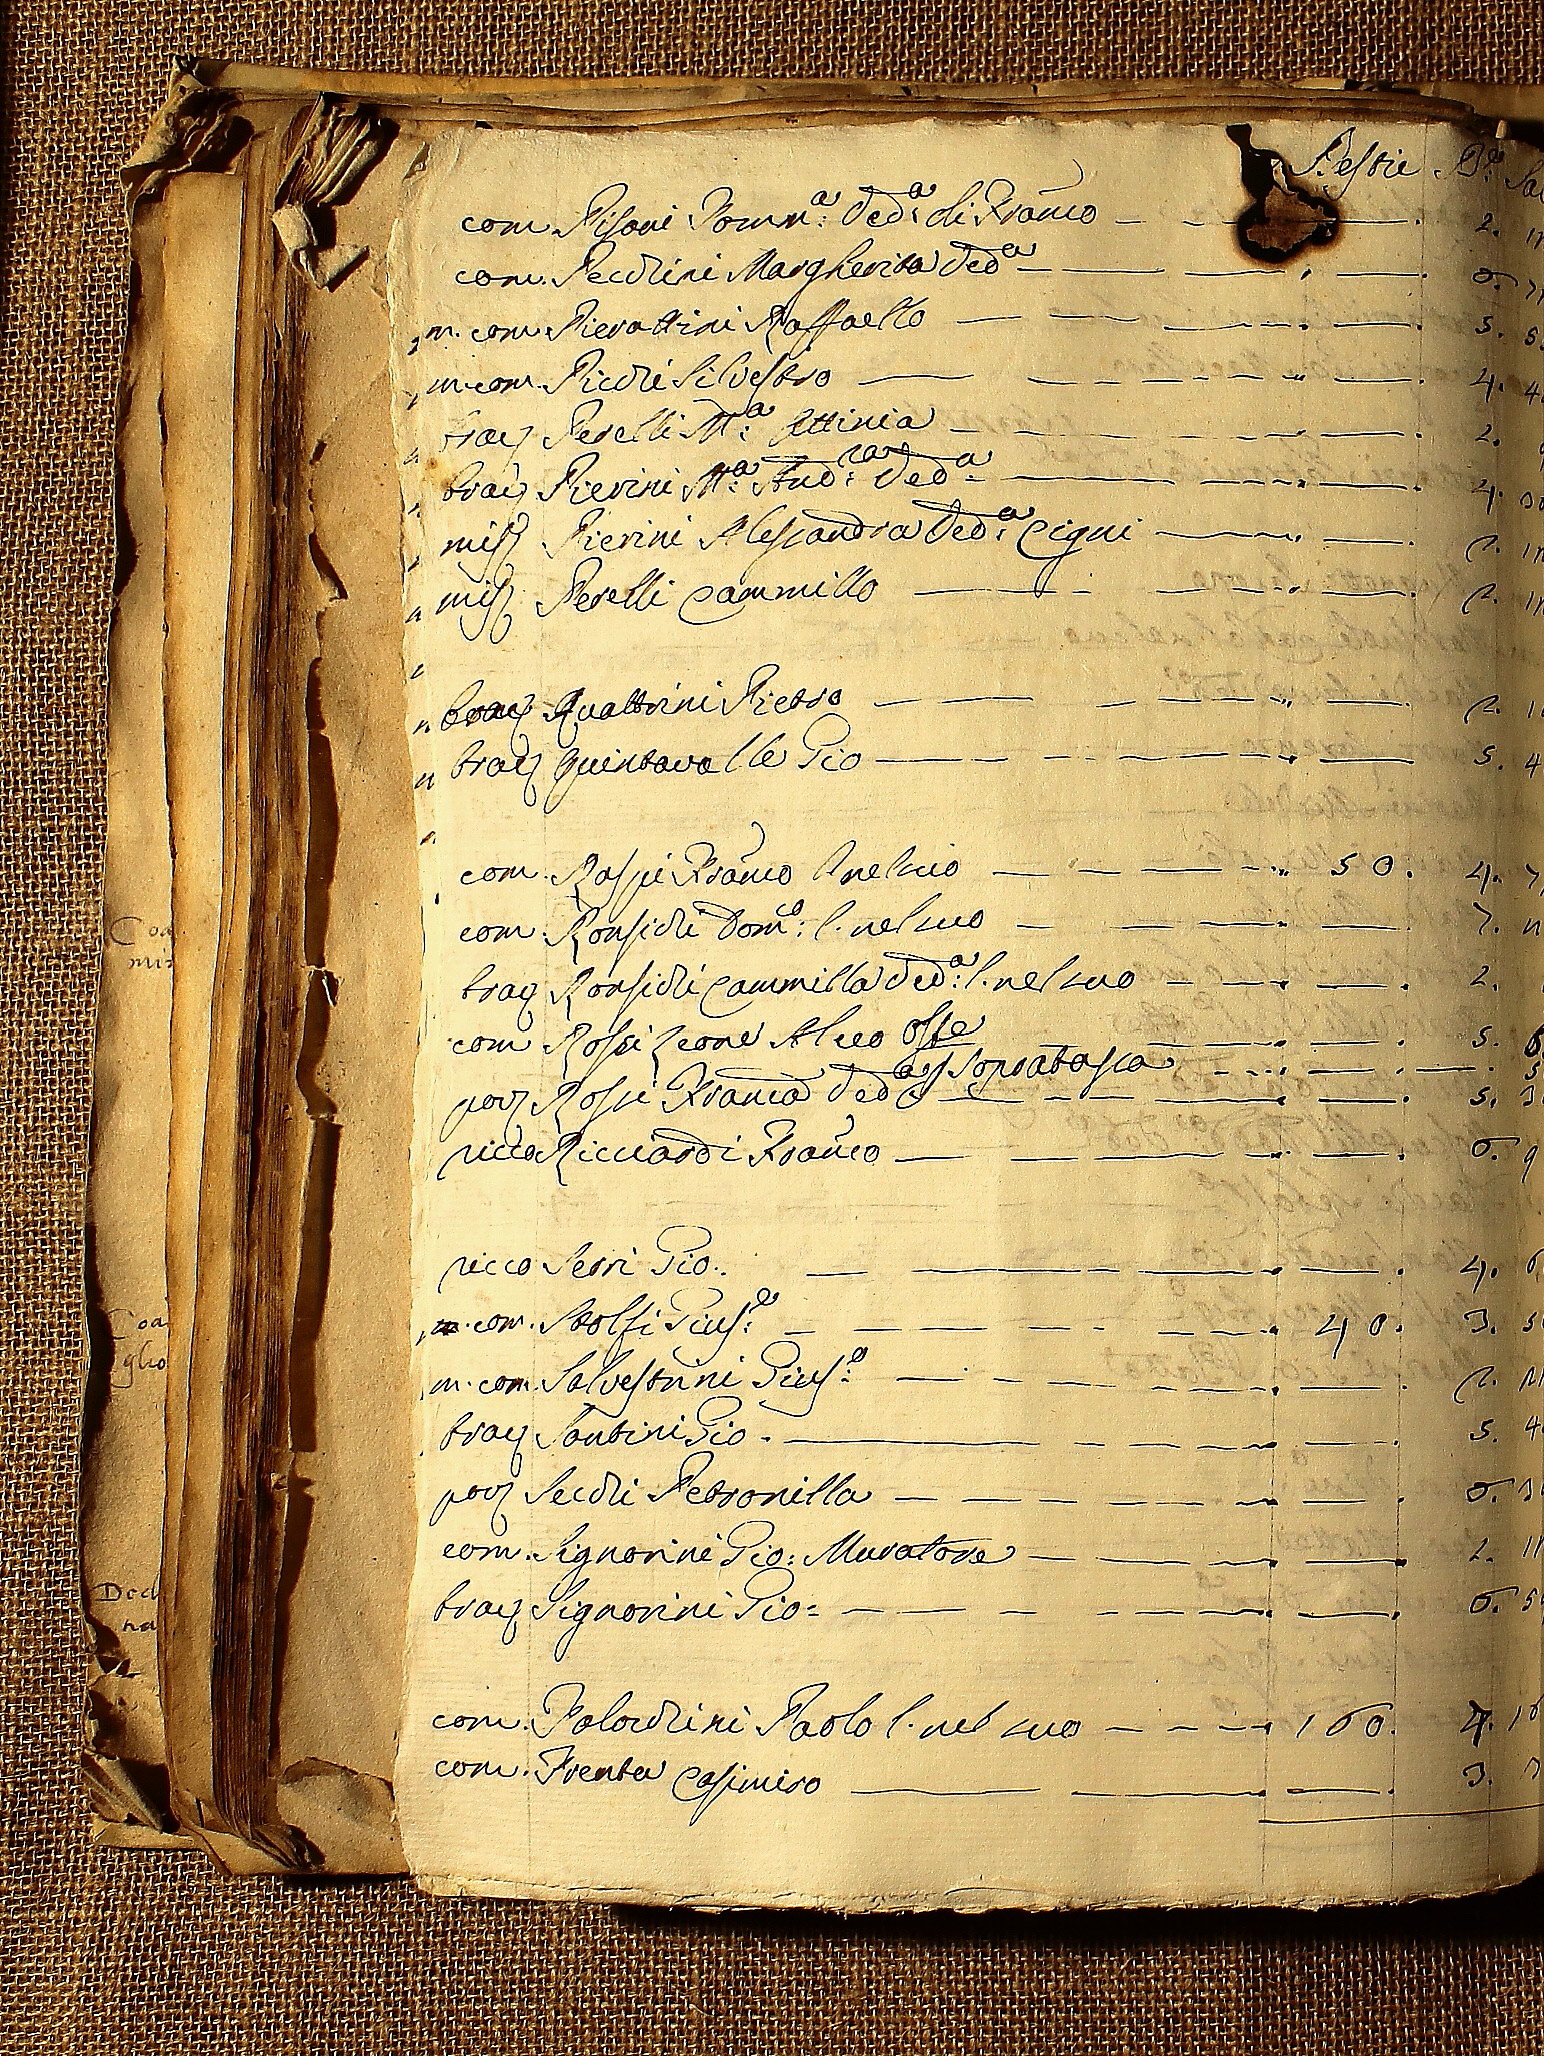 Bestie B.e
com. Pisani Domn.a Ved.a di Franco 2.
com. Pecchini Margherita Ved.a 6.
m. com. Pierattini Raffaello 5.
m. com. Picchi Silvestro 4. 4
brac. Perelli M.a Attinia 2.
brac. Pierini M.a And.ra Ved.a 4.
mis. Pierini Alessandra Ved.a Cigni 2.
mis. Perelli Cammillo 2.
brac. Quattrini Pietro 2.
brac. Quintavalle Gio 5. 4
com. Raspi Franco l. nel suo 50. 4.
com. Ronsichi Dom.o: l. nel suo 7.
brac. Ronsichi Cammilla Ved.a: l. nel suo 2.
com Rossi Leone Alceo Oste 5.
a Soprabasca
pov. Rossi Franca Ved.a 5.
ricco Ricciardi Franco 6. 9
ricco Serri Gio: 4.
m. com. Stolfi Gius.e: 40. 3.
m. com. Salvestrini Gius.e: 2.
brac. Santini Gio. 5. 4
pov. Secchi Petronilla 6.
com. Signorini Gio: Muratore 2.
brac. Signorini Gio: 6.
com. Talocchini Paolo l. nel suo 160. 4.
com. Trenta Casimiro 3.
Coa
Coa
glio
Ded
na